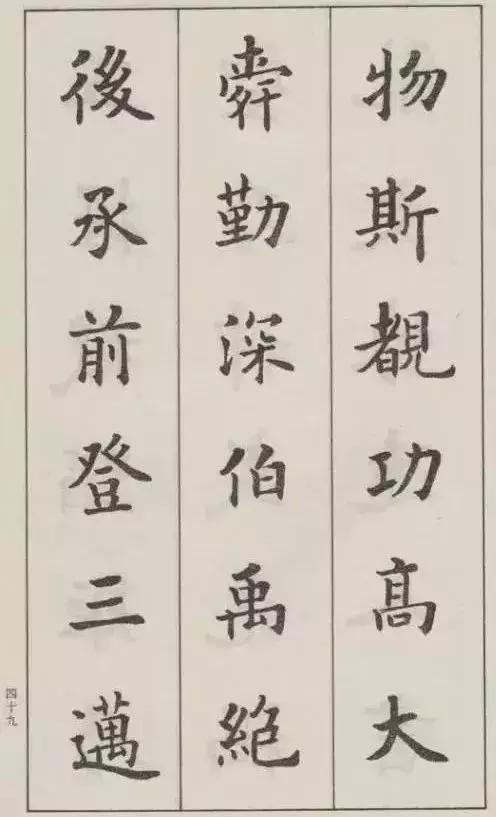 物斯覩功高大
舜勤深伯禹絕
後承前登三邁
四十九